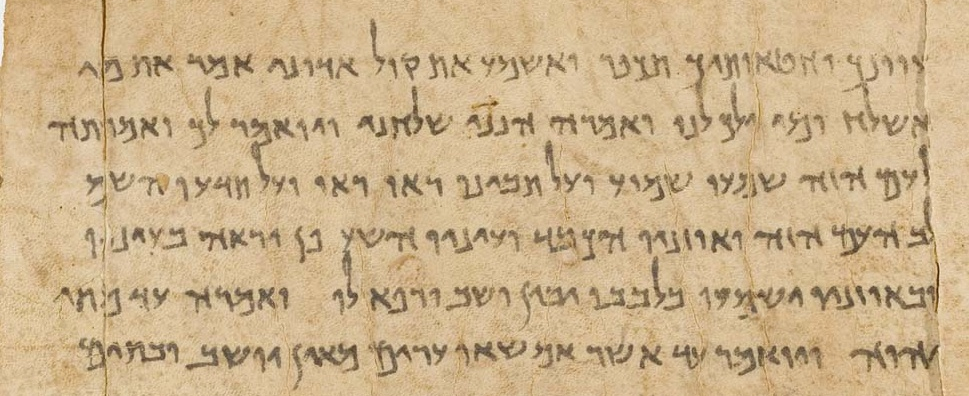 עוונך וחטאותיך תכפר ואשמע את קול אדוני אמר את מי
אשלח ומי ילך לנו ואמרה הנני שלחני ויואמר לך ואמרתה
לעם הזה שמעו שמוע ועל תבינו ראו ראו ועל תדעו השמ
לב העם הזה ואוזניו הכבד ועיניו השע פן יראה בעיניו
ובאוזניו ישמעו בלבבו יבין ושב ורפא לו ואמרה עד מתי
יהוה ויואמר עד אשר אם שאו ערים מאין יושב ובתים